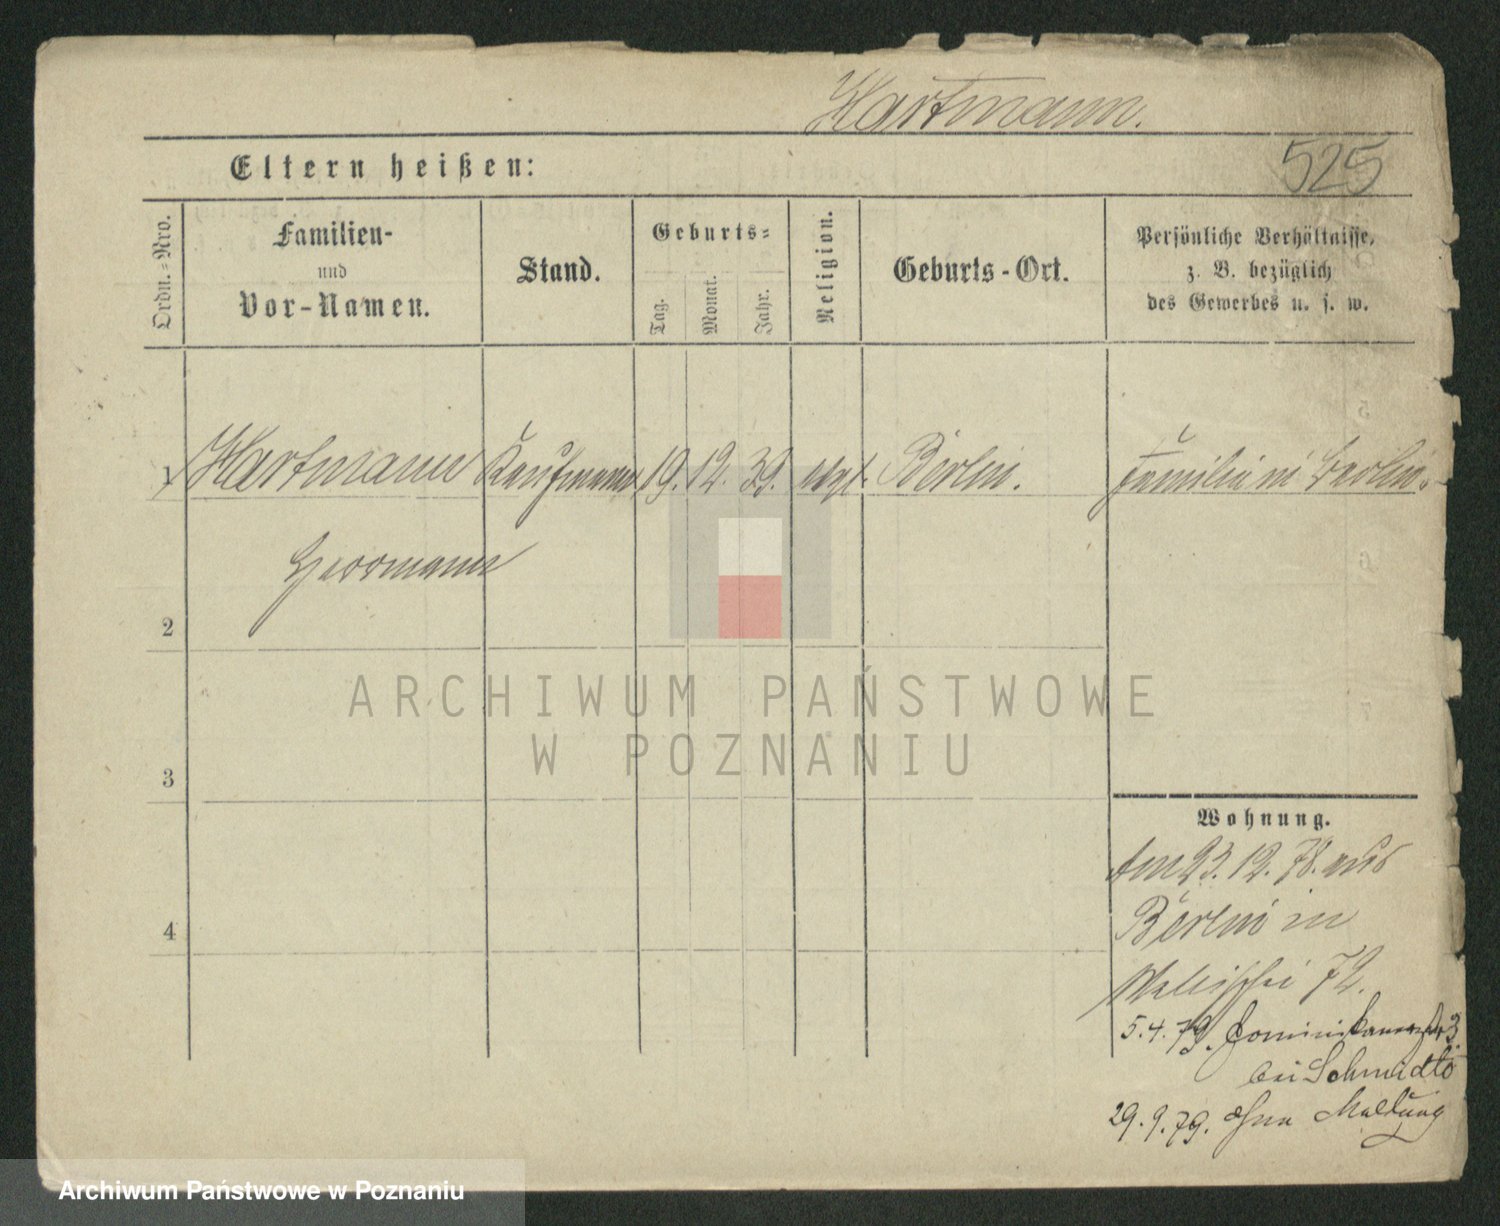 Hartmann.
Eltern heißen:
525
Ordn.-Nro.
Familien-
und
Vor-Namen.
Stand.
Geburts-
Tag.
Monat.
Jahr.
Religion.
Geburts-Ort.
Persönliche Verhältnisse,
z. B. bezüglich
des Gewerbes u. s. w.
1 Hartmann Kaufmann 19. 12. 39. Berlin. Familie in Berlin.
Herrmann
2
3
4
Wohnung.
Am 23. 12. 78. aus
Berlin in
Wallischei 72.
5. 4. 79. Dominikanerstr 3.
bei Schmidt
29. 9. 79. ohne Meldung
ARCHIWUM PAŃSTWOWE
W POZNANIU
Archiwum Państwowe w Poznaniu